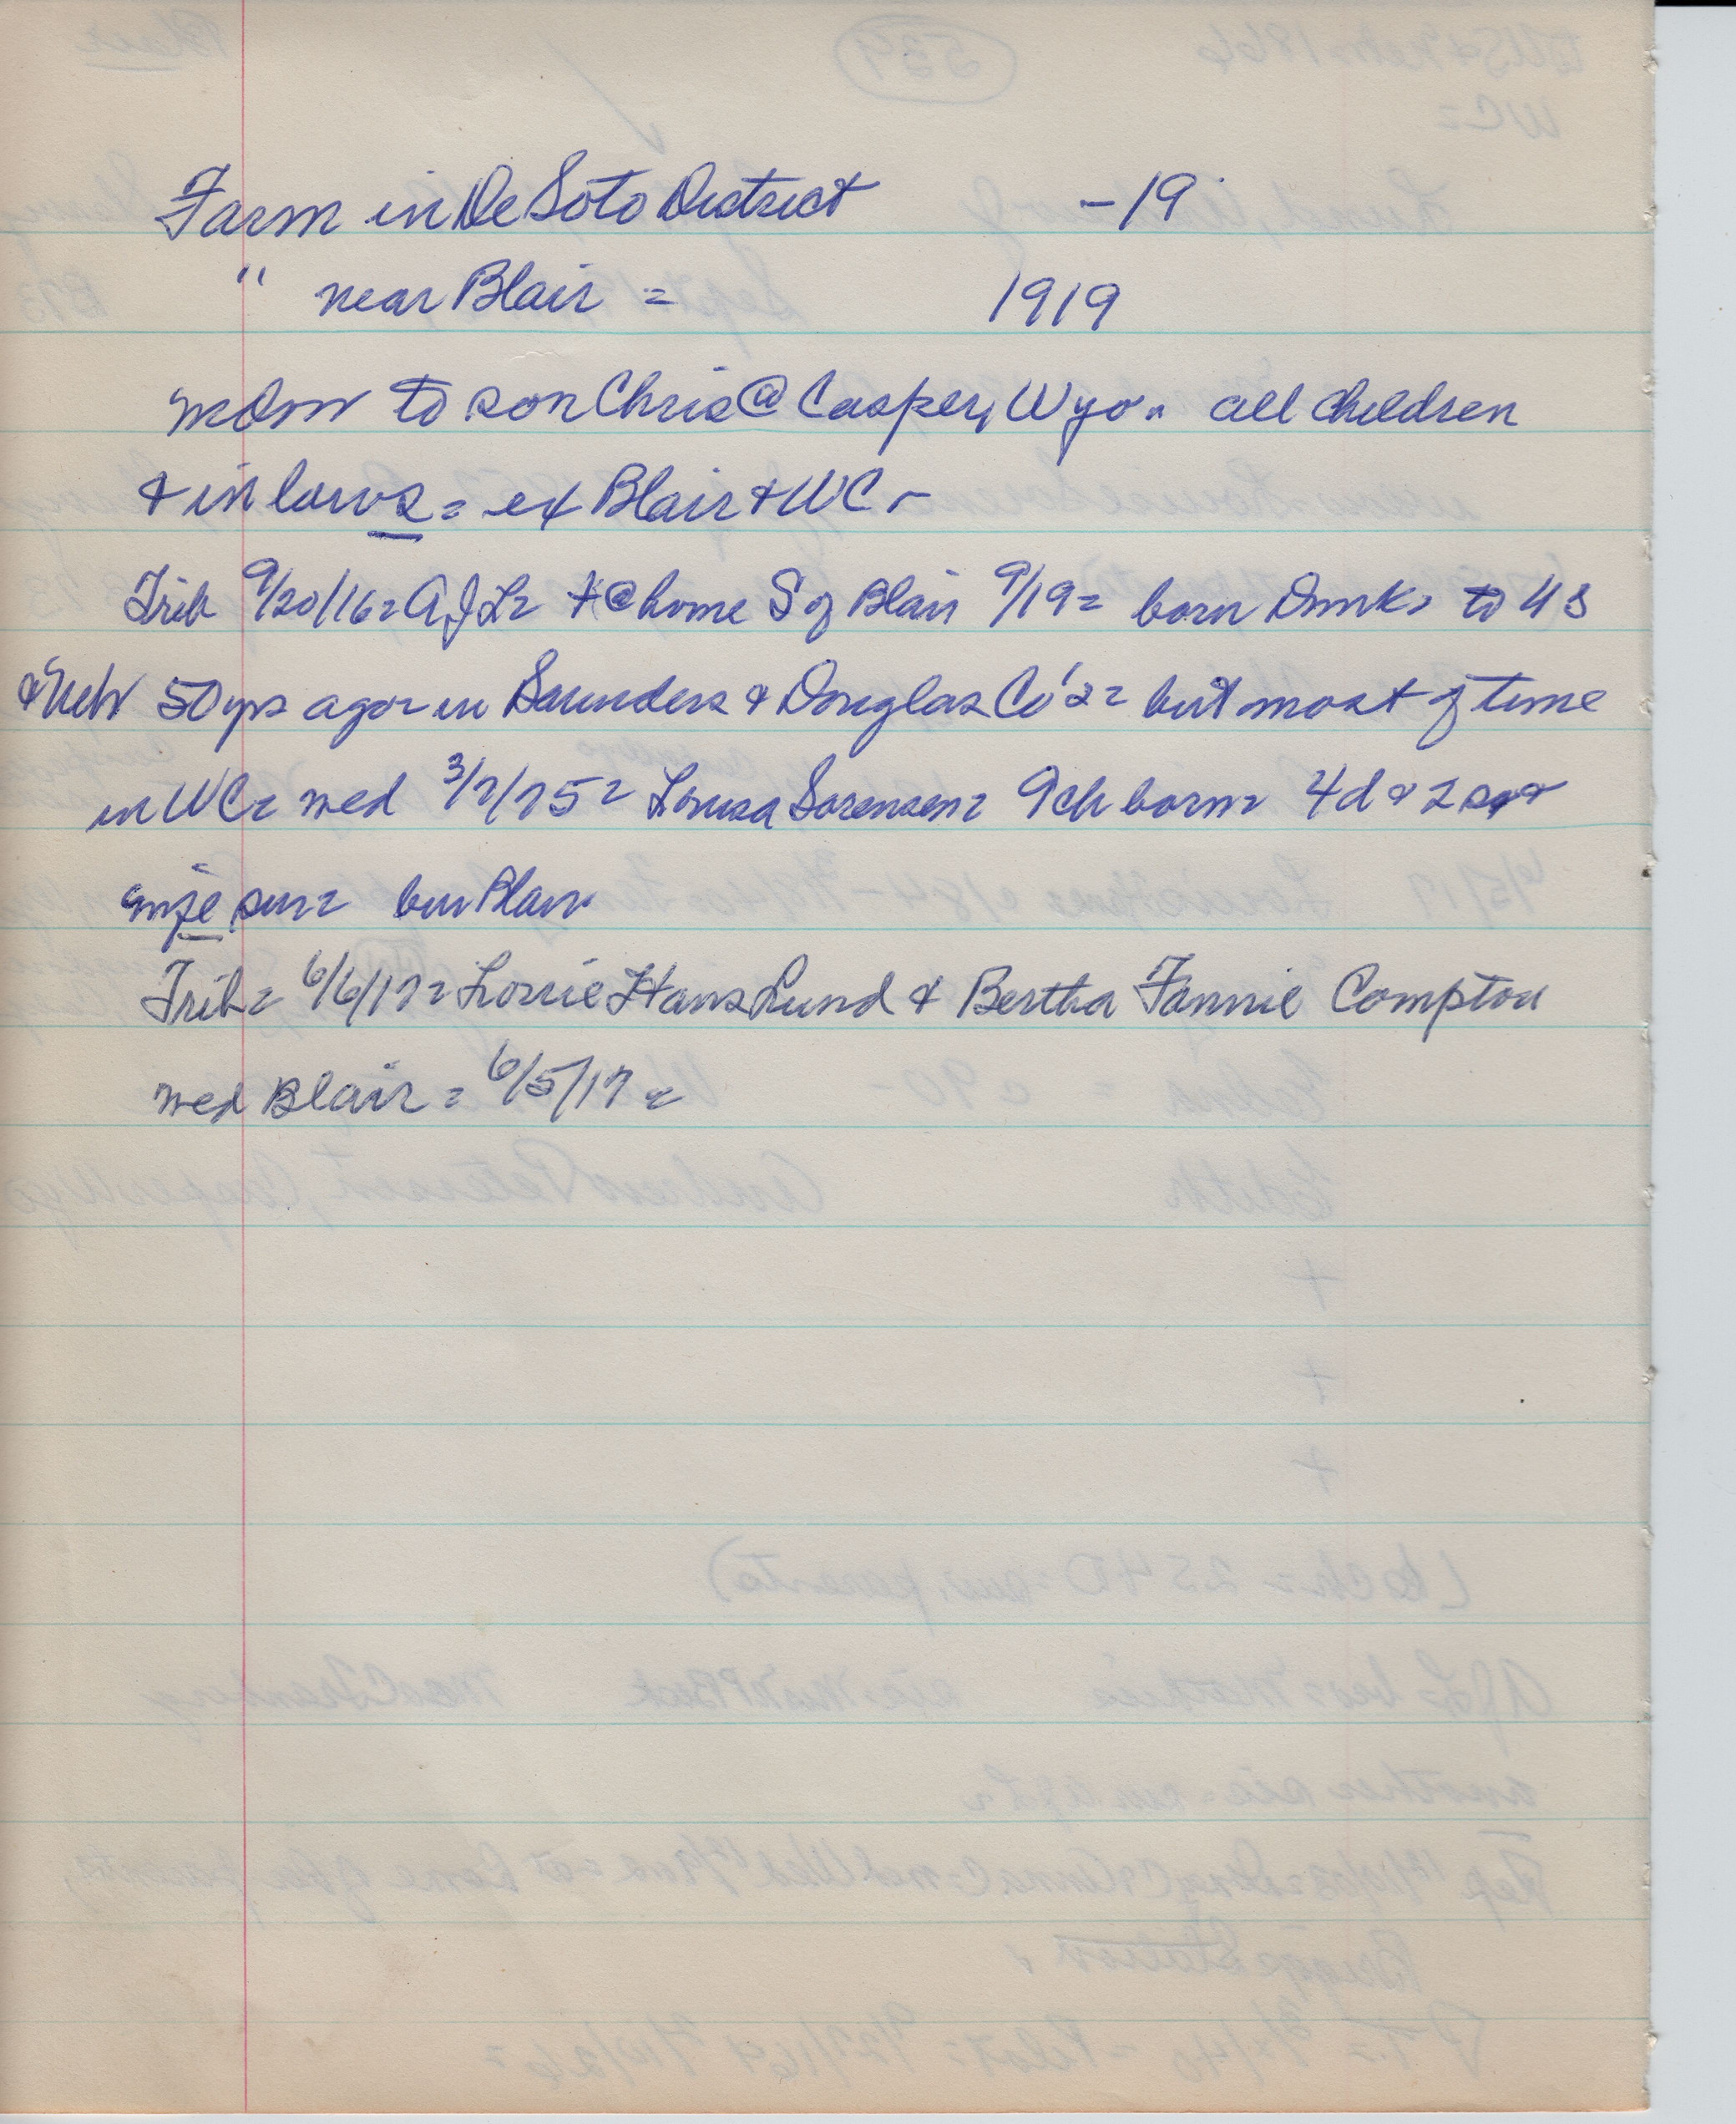 Farm in De Soto District -19
" near Blair = 1919
mdm to son Chris @ Casper, Wyo. all children
& in laws = ex Blair & WC -
Trib 9/20/16 = AJL = + @ home S of Blair 9/19 = born Dmk = to US
& Neb 50 yrs ago = in Saunders & Douglas Co's = but most of time
in WC = wed 3/7/75 = Louisa Sorensen = 9 ch born = 4d & 2 s &
wife sur = bur Blair
Trib = 6/6/17 = Lorrie Hans Lund & Bertha Fannie Compton
wed Blair = 6/5/17 =